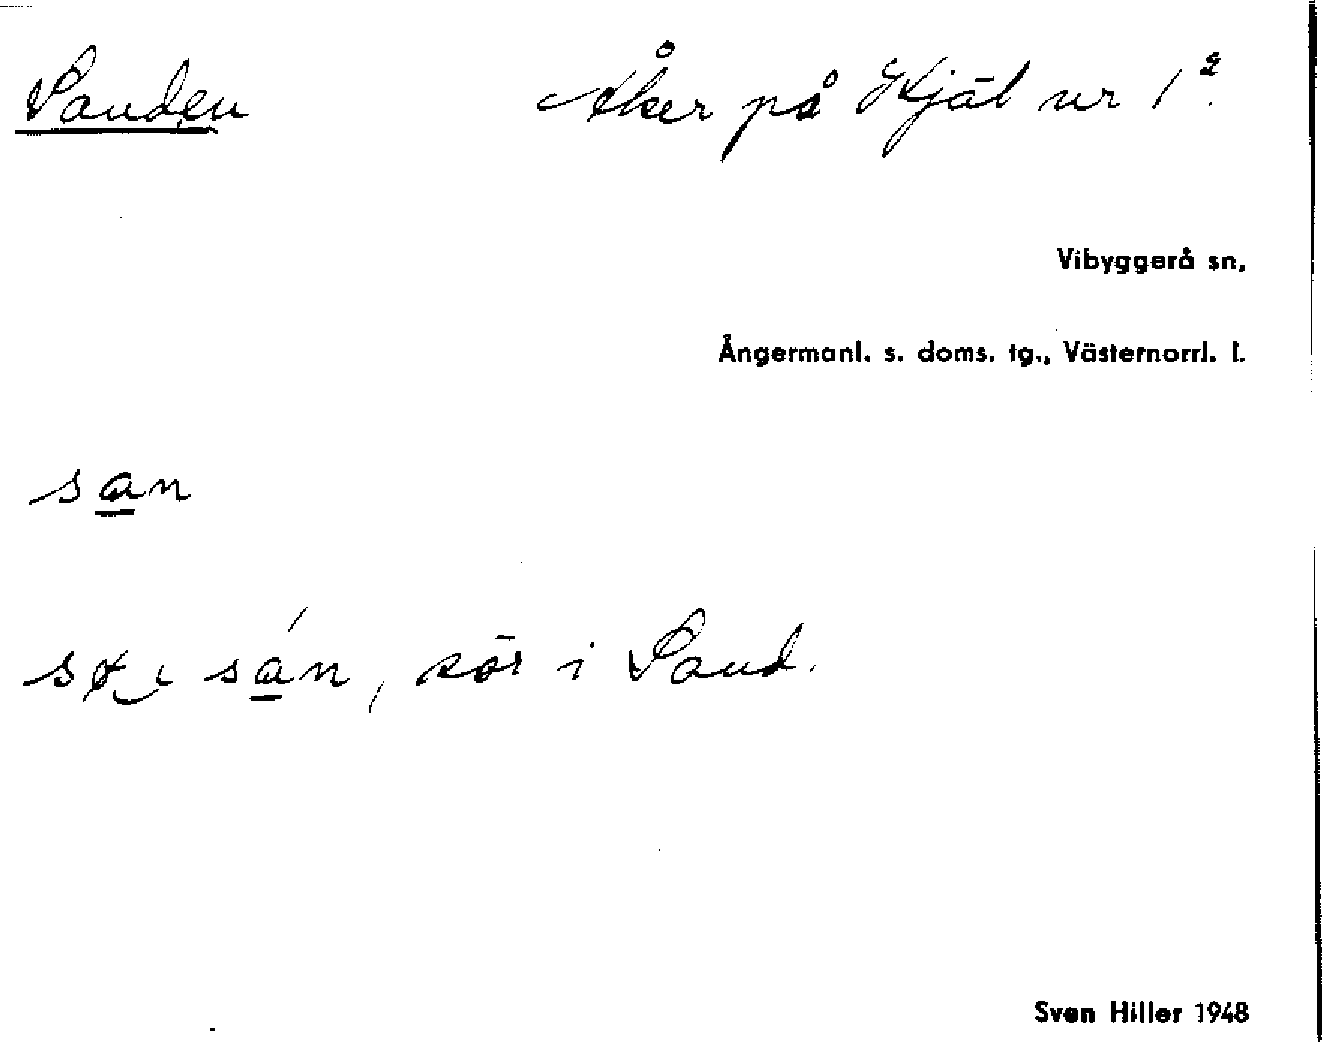 Sanden Åker på Hjäl nr 1².
Vibyggerå sn,
Ångermanl. s. doms. tg., Västernorrl. l.
san
i sán, sör i Sand.
Sven Hiller 1948